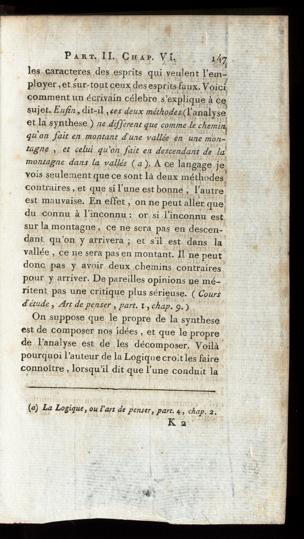 PART. II. CHAP. VI. 147
les caracteres des esprits qui veulent l'em-
ployer, et sur-tout ceux des esprits faux. Voici
comment un écrivain célebre s'explique à ce
sujet. Enfin, dit-il, ces deux méthodes (l'analyse
et la synthese) ne different que comme le chemin
qu'on fait en montant d'une vallée en une mon-
tagne, et celui qu'on fait en descendant de la
montagne dans la vallée (a). A ce langage je
vois seulement que ce sont là deux méthodes
contraires, et que si l'une est bonne, l'autre
est mauvaise. En effet, on ne peut aller que
du connu à l'inconnu: or si l'inconnu est
sur la montagne, ce ne sera pas en descen-
dant qu'on y arrivera; et s'il est dans la
vallée, ce ne sera pas en montant. Il ne peut
donc pas y avoir deux chemins contraires
pour y arriver. De pareilles opinions ne mé-
ritent pas une critique plus sérieuse. (Cours
d'étude, Art de penser, part. 1, chap. 9.)
On suppose que le propre de la synthese
est de composer nos idées, et que le propre
de l'analyse est de les décomposer. Voilà
pourquoi l'auteur de la Logique croit les faire
connoître, lorsqu'il dit que l'une conduit la
(a) La Logique, ou l'art de penser, part. 4, chap. 2.
K 2